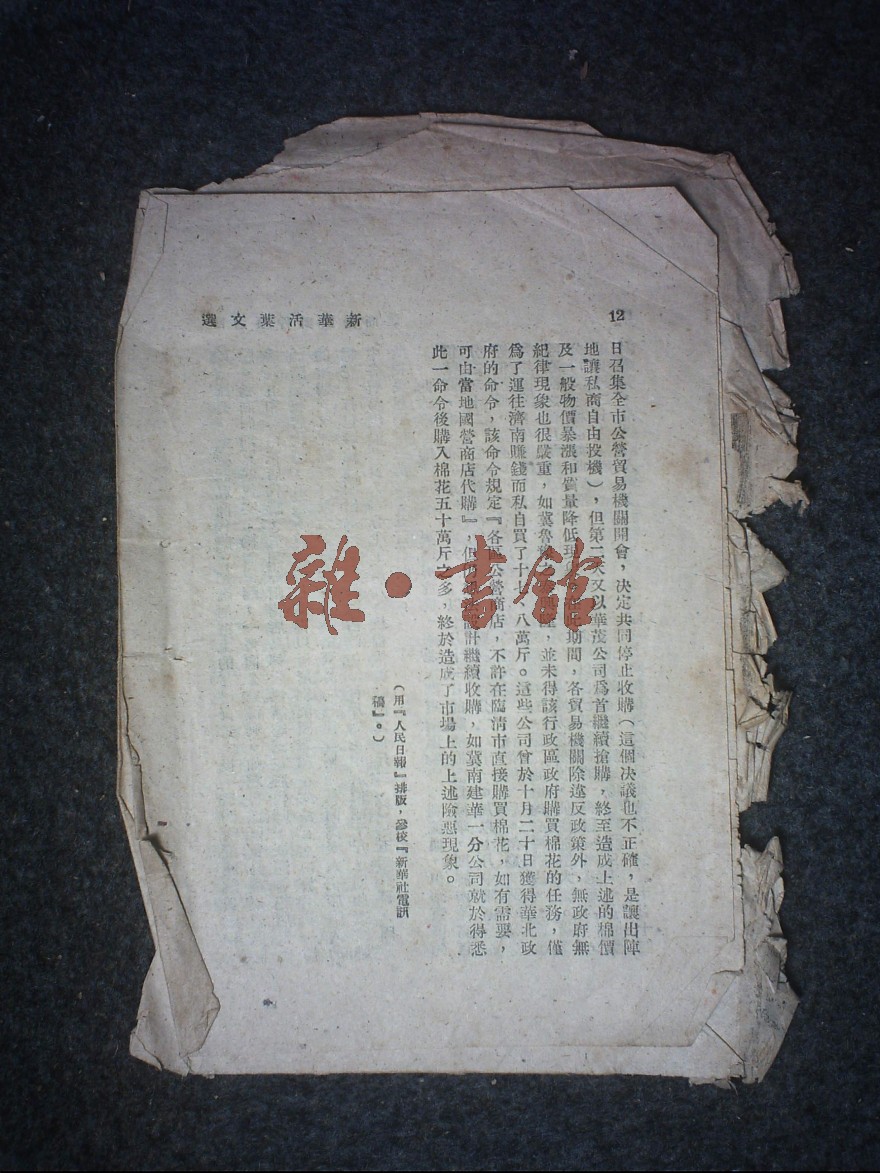 12
新華活葉文選
日召集全市公營貿易機關開會，決定共同停止收購（這個決議也不正確，是讓出陣
地讓私商自由投機），但第二天又以華茂公司爲首繼續搶購，終至造成上述的棉價
及一般物價暴漲和質量降低現 期間，各貿易機關除違反政策外，無政府無
紀律現象也很嚴重，如冀魯豫 ，並未得該行政區政府購買棉花的任務，僅
爲了運往濟南賺錢而私自買了十七、八萬斤。這些公司曾於十月二十日獲得華北政
府的命令，該命令規定『各區公營商店，不許在臨清市直接購買棉花，如有需要，
可由當地國營商店代購』，但 計繼續收購，如冀南建華一分公司就於得悉
此一命令後購入棉花五十萬斤之多，終於造成了市場上的上述險惡現象。
（用『人民日報』排版，參校『新華社電訊
稿』。）
雜·書館